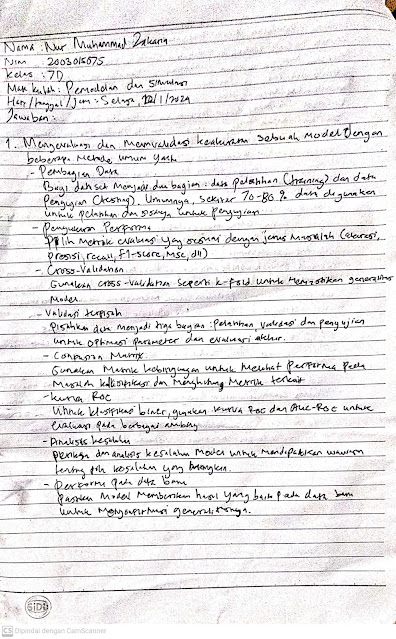 Nama : Nur Muhammad Zakaria
Nim : 2003015075
Kelas : 7D
Mata kuliah : Pemodelan dan simulasi
Hari/tanggal/jam : Selasa, 12/1/2024
Jawaban :
1. Mengevaluasi dan Memvalidasi keakuratan sebuah model dengan
beberapa metode umum yaitu
- Pembagian Data
Bagi dataset Menjadi dua bagian : data pelatihan (training) dan data
Pengujian (testing). Umumnya, Sekitar 70-80% data digunakan
untuk pelatihan dan sisanya untuk pengujian
- Pengukuran Performa
Pilih Metrik evaluasi yang sesuai dengan jenis Masalah (akurasi,
presisi, recall, F1-score, MSE, dll)
- Cross-Validation
Gunakan cross-validation seperti k-fold untuk Memastikan generalisasi
Model.
- Validasi terpisah
Pisahkan data menjadi tiga bagian : pelatihan, validasi dan pengujian
untuk optimasi parameter dan evaluasi akhir.
- Confusion Matrix
Gunakan Matrik kebingungan untuk Melihat performa pada
Masalah klasifikasi dan Menghitung Metrik terkait
- kurva ROC
Untuk klasifikasi biner, gunakan kurva ROC dan AUC-ROC untuk
evaluasi pada berbagai ambang
- Analisis kesalahan
periksa dan analisis kesalahan Model untuk mendapatkan wawasan
tentang kesalahan yang
- performa pada data baru
pastikan Model Memberikan hasil yang baik pada data baru
untuk Mengonfirmasi generalisasinya.
SIDU
CS Dipindai dengan CamScanner